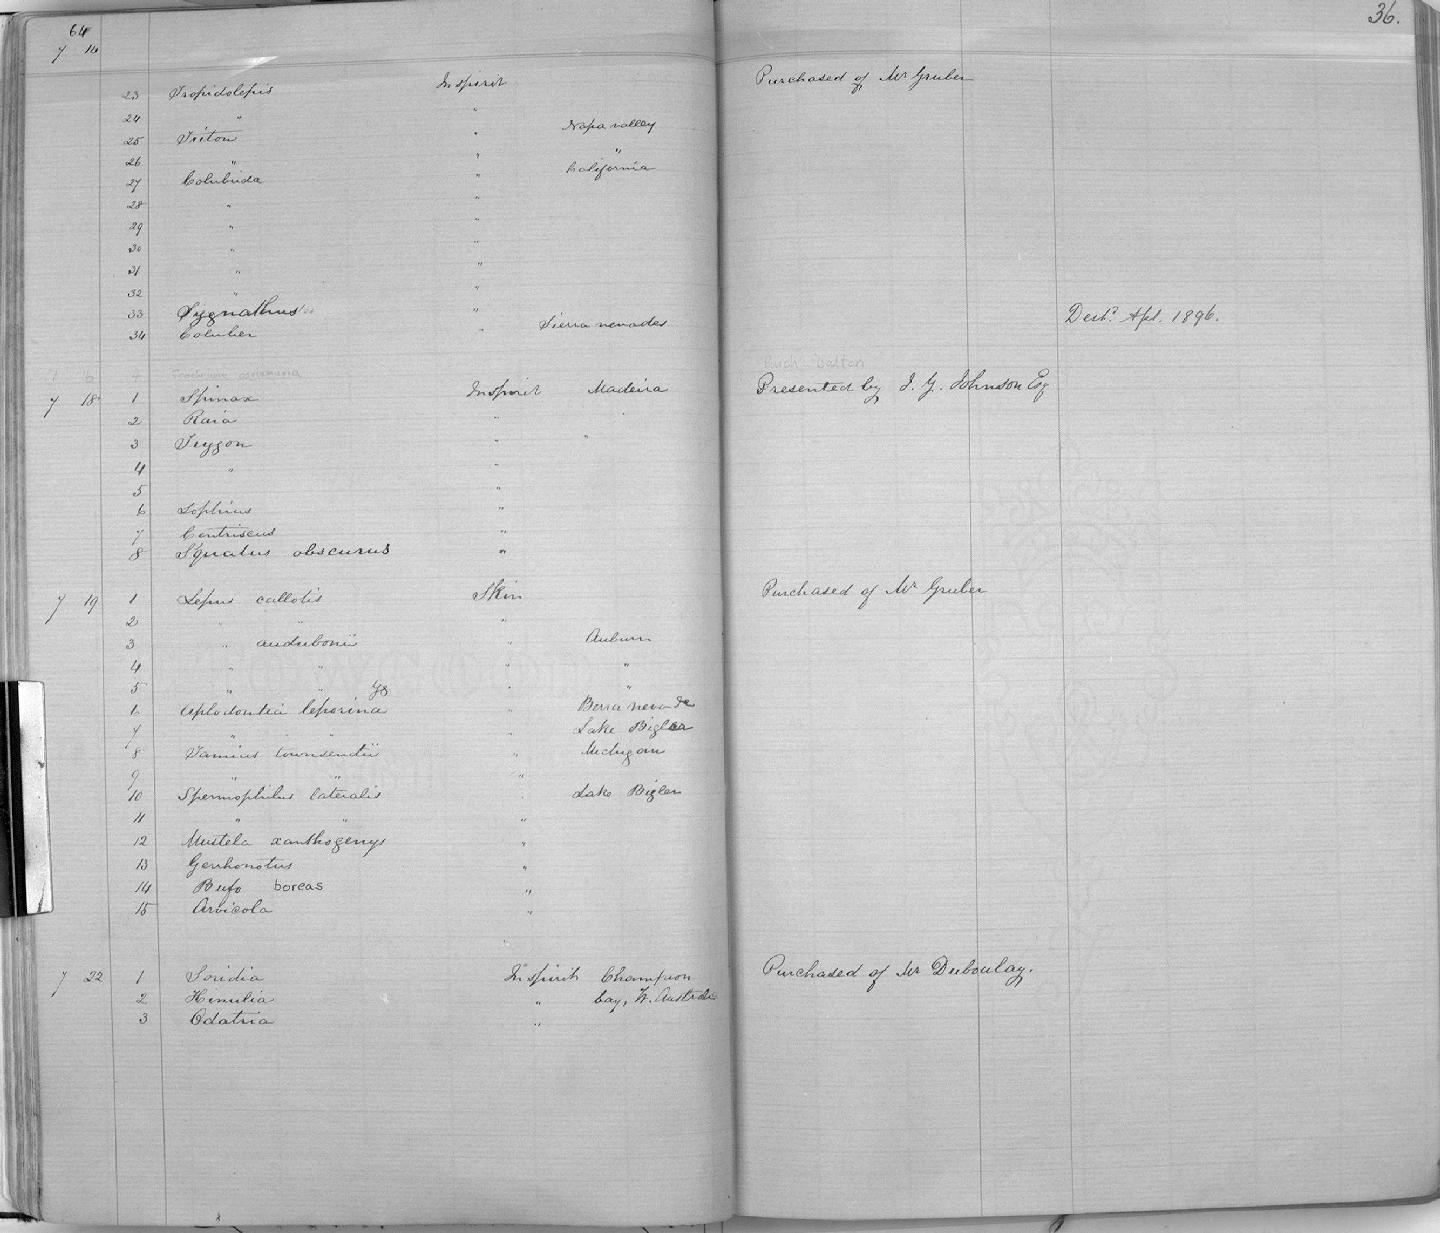 36.
64
7 14
23 Tropidolepis In spirit Purchased of Mr Gruber
24 " "
25 Triton " Napa valley
26 " " "
27 Colubrida " California
28 " "
29 " "
30 " "
31 " "
32 " "
33 Sygnathus " Destd. Apl. 1896.
34 Coluber " Sierra nevades
7 18 1 Spinax In spirit Madeira Presented by J. Y. Johnson Esq
2 Raia " "
3 Trygon " "
4 " "
5 "
6 Lophius "
7 Centriscus "
8 Squalus obscurus "
7 19 1 Lepus callotis Skin Purchased of Mr Gruber
2 " " "
3 " audubonii " Auburn
4 " " " "
5 " " yg " "
6 Aplodontia leporina "
7 " " " Lake Bigler
8 Tamias townsendii " Michigan
9 " " "
10 Spermophilus lateralis " Lake Bigler
11 " " "
12 Mustela xanthogenys "
13 Gerrhonotus "
14 Bufo boreas "
15 Arvicola "
7 22 1 Soridia In spirit Champion Purchased of Mr Duboulay.
2 Hinulia " bay, W. Australia
3 Odatria "